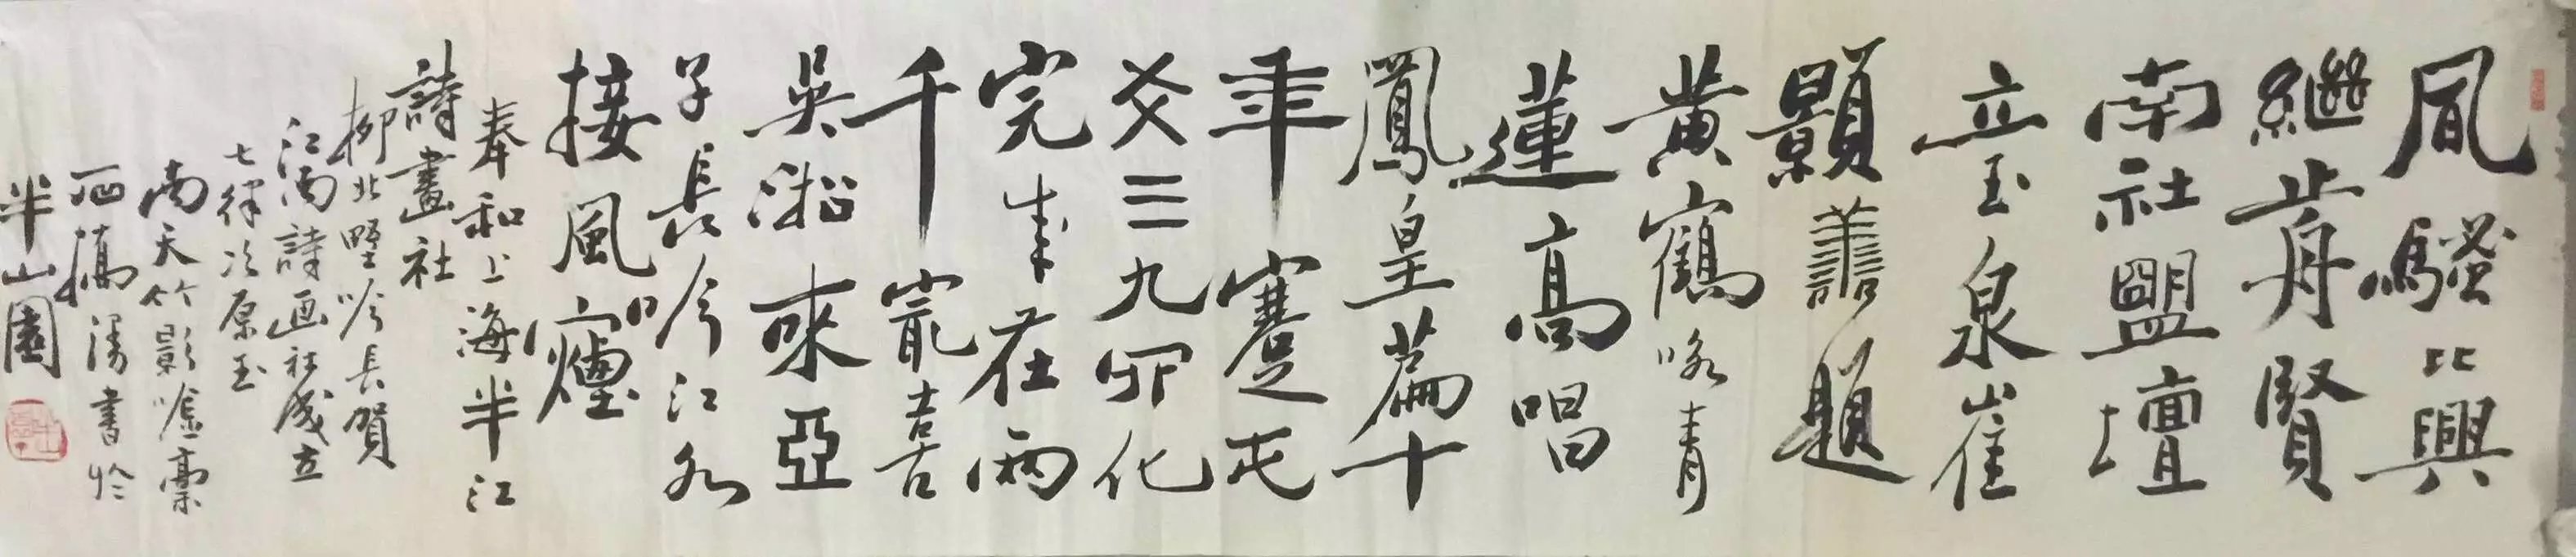 風騷比興
繼前賢
南社盟壇
立玉泉崔
顥善題
黄鶴咏青
蓮高唱
鳳皇篇十
年蹇屯
爻三九卯化
完未在兩
千寵喜
吳淞來亞
子長吟江水
接風煙
奉和上海半江
詩畫社
柳北野吟長賀
江南詩画社成立
七律次原玉
南天竹影嘘稿
書於
半山園